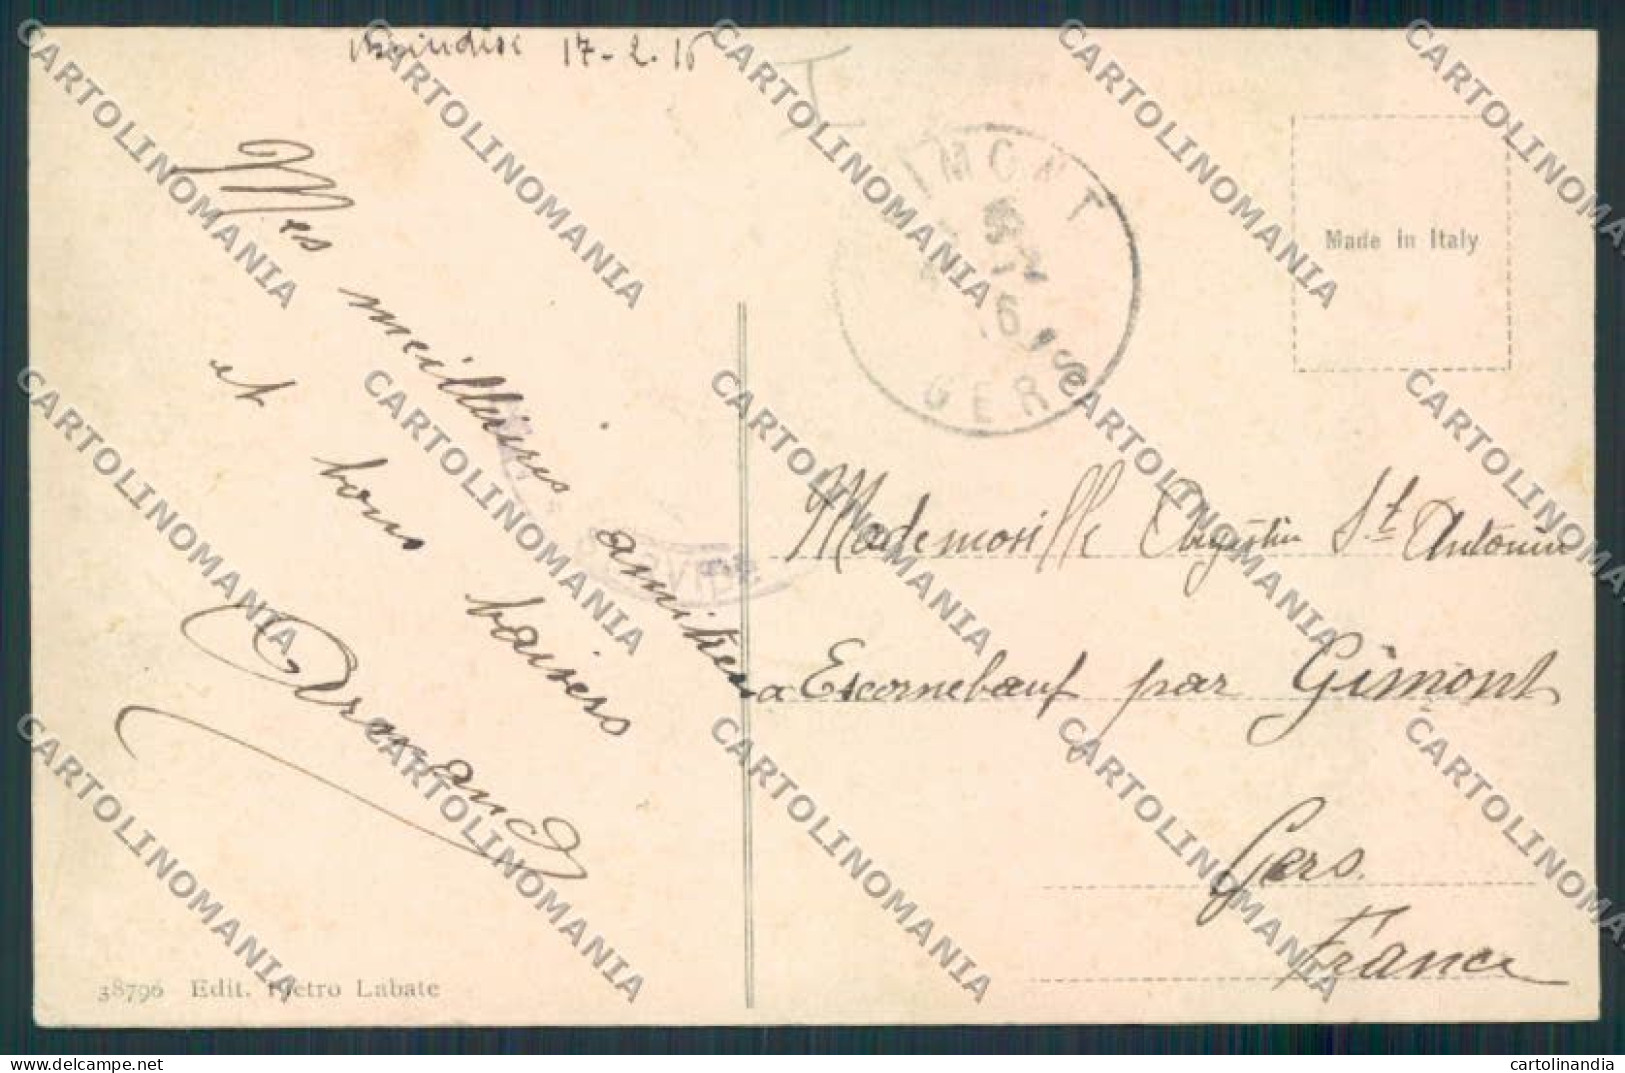 17-2-16
Mes meilleures amitiés
et bons baisers
Armand
IMONT
GER
Made in Italy
Mademoiselle Augustin St Antonin
a Escorneboeuf par Gimont
Gers.
France
38796 Edit. Pietro Labate
CARTOLINOMANIA
www.delcampe.net
cartolinandia